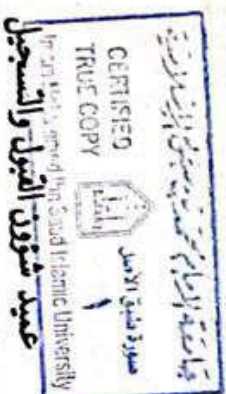 جامعة الإمام محمد بن سعود الإسلامية
CERTIFIED
TRUE COPY
صورة طبق الأصل
Ibn Saud Islamic University
عميد شؤون القبول والتسجيل